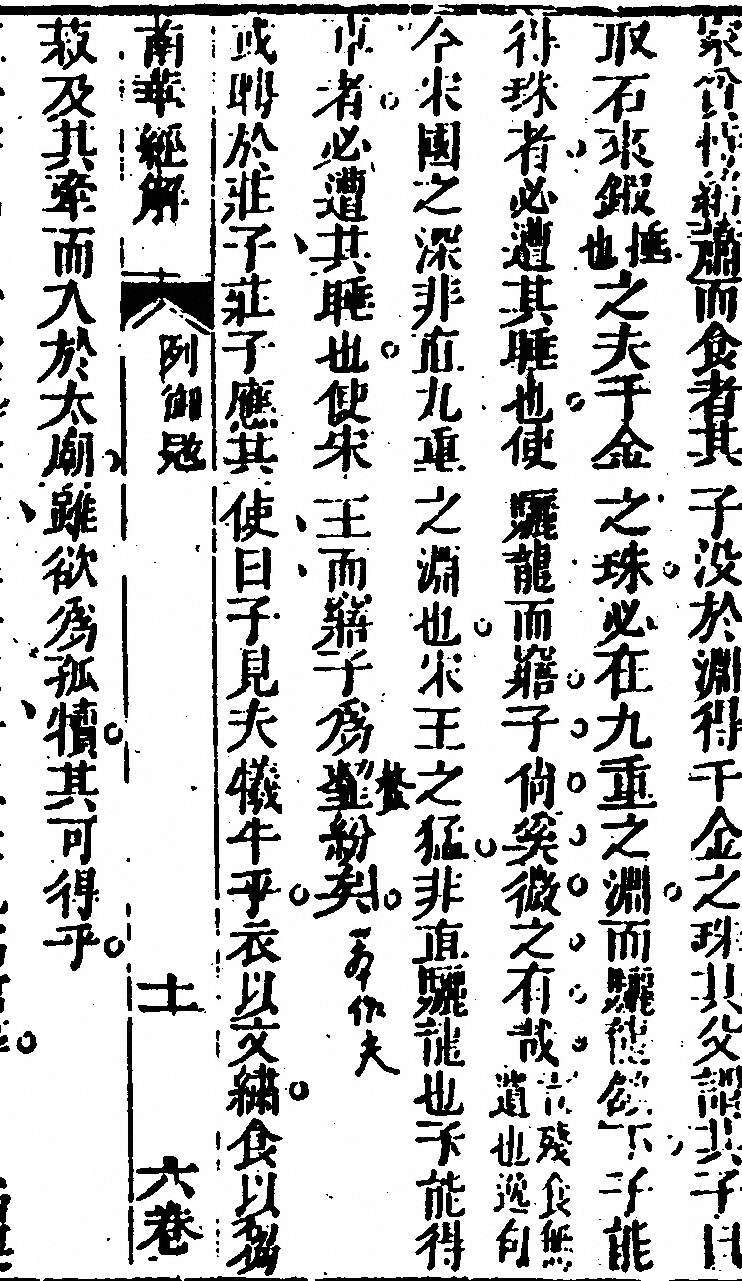 家貧恃緯蕭而食者其子没於淵得千金之珠其父謂其子曰
取石來鍜捶也之夫千金之珠必在九重之淵而驪龍頷下子能
得珠者必遭其睡也使驪龍而寤子尚奚微之有哉言殘食無遺也逸句
今宋國之深非直九重之淵也宋王之猛非直驪龍也子能得
車者必遭其睡也使宋王而寤子為韲粉矣
或聘於莊子莊子應其使曰子見夫犧牛乎衣以文繡食以芻
南華經解
列御寇
士
六卷
菽及其牽而入於太廟雖欲為孤犢其可得乎